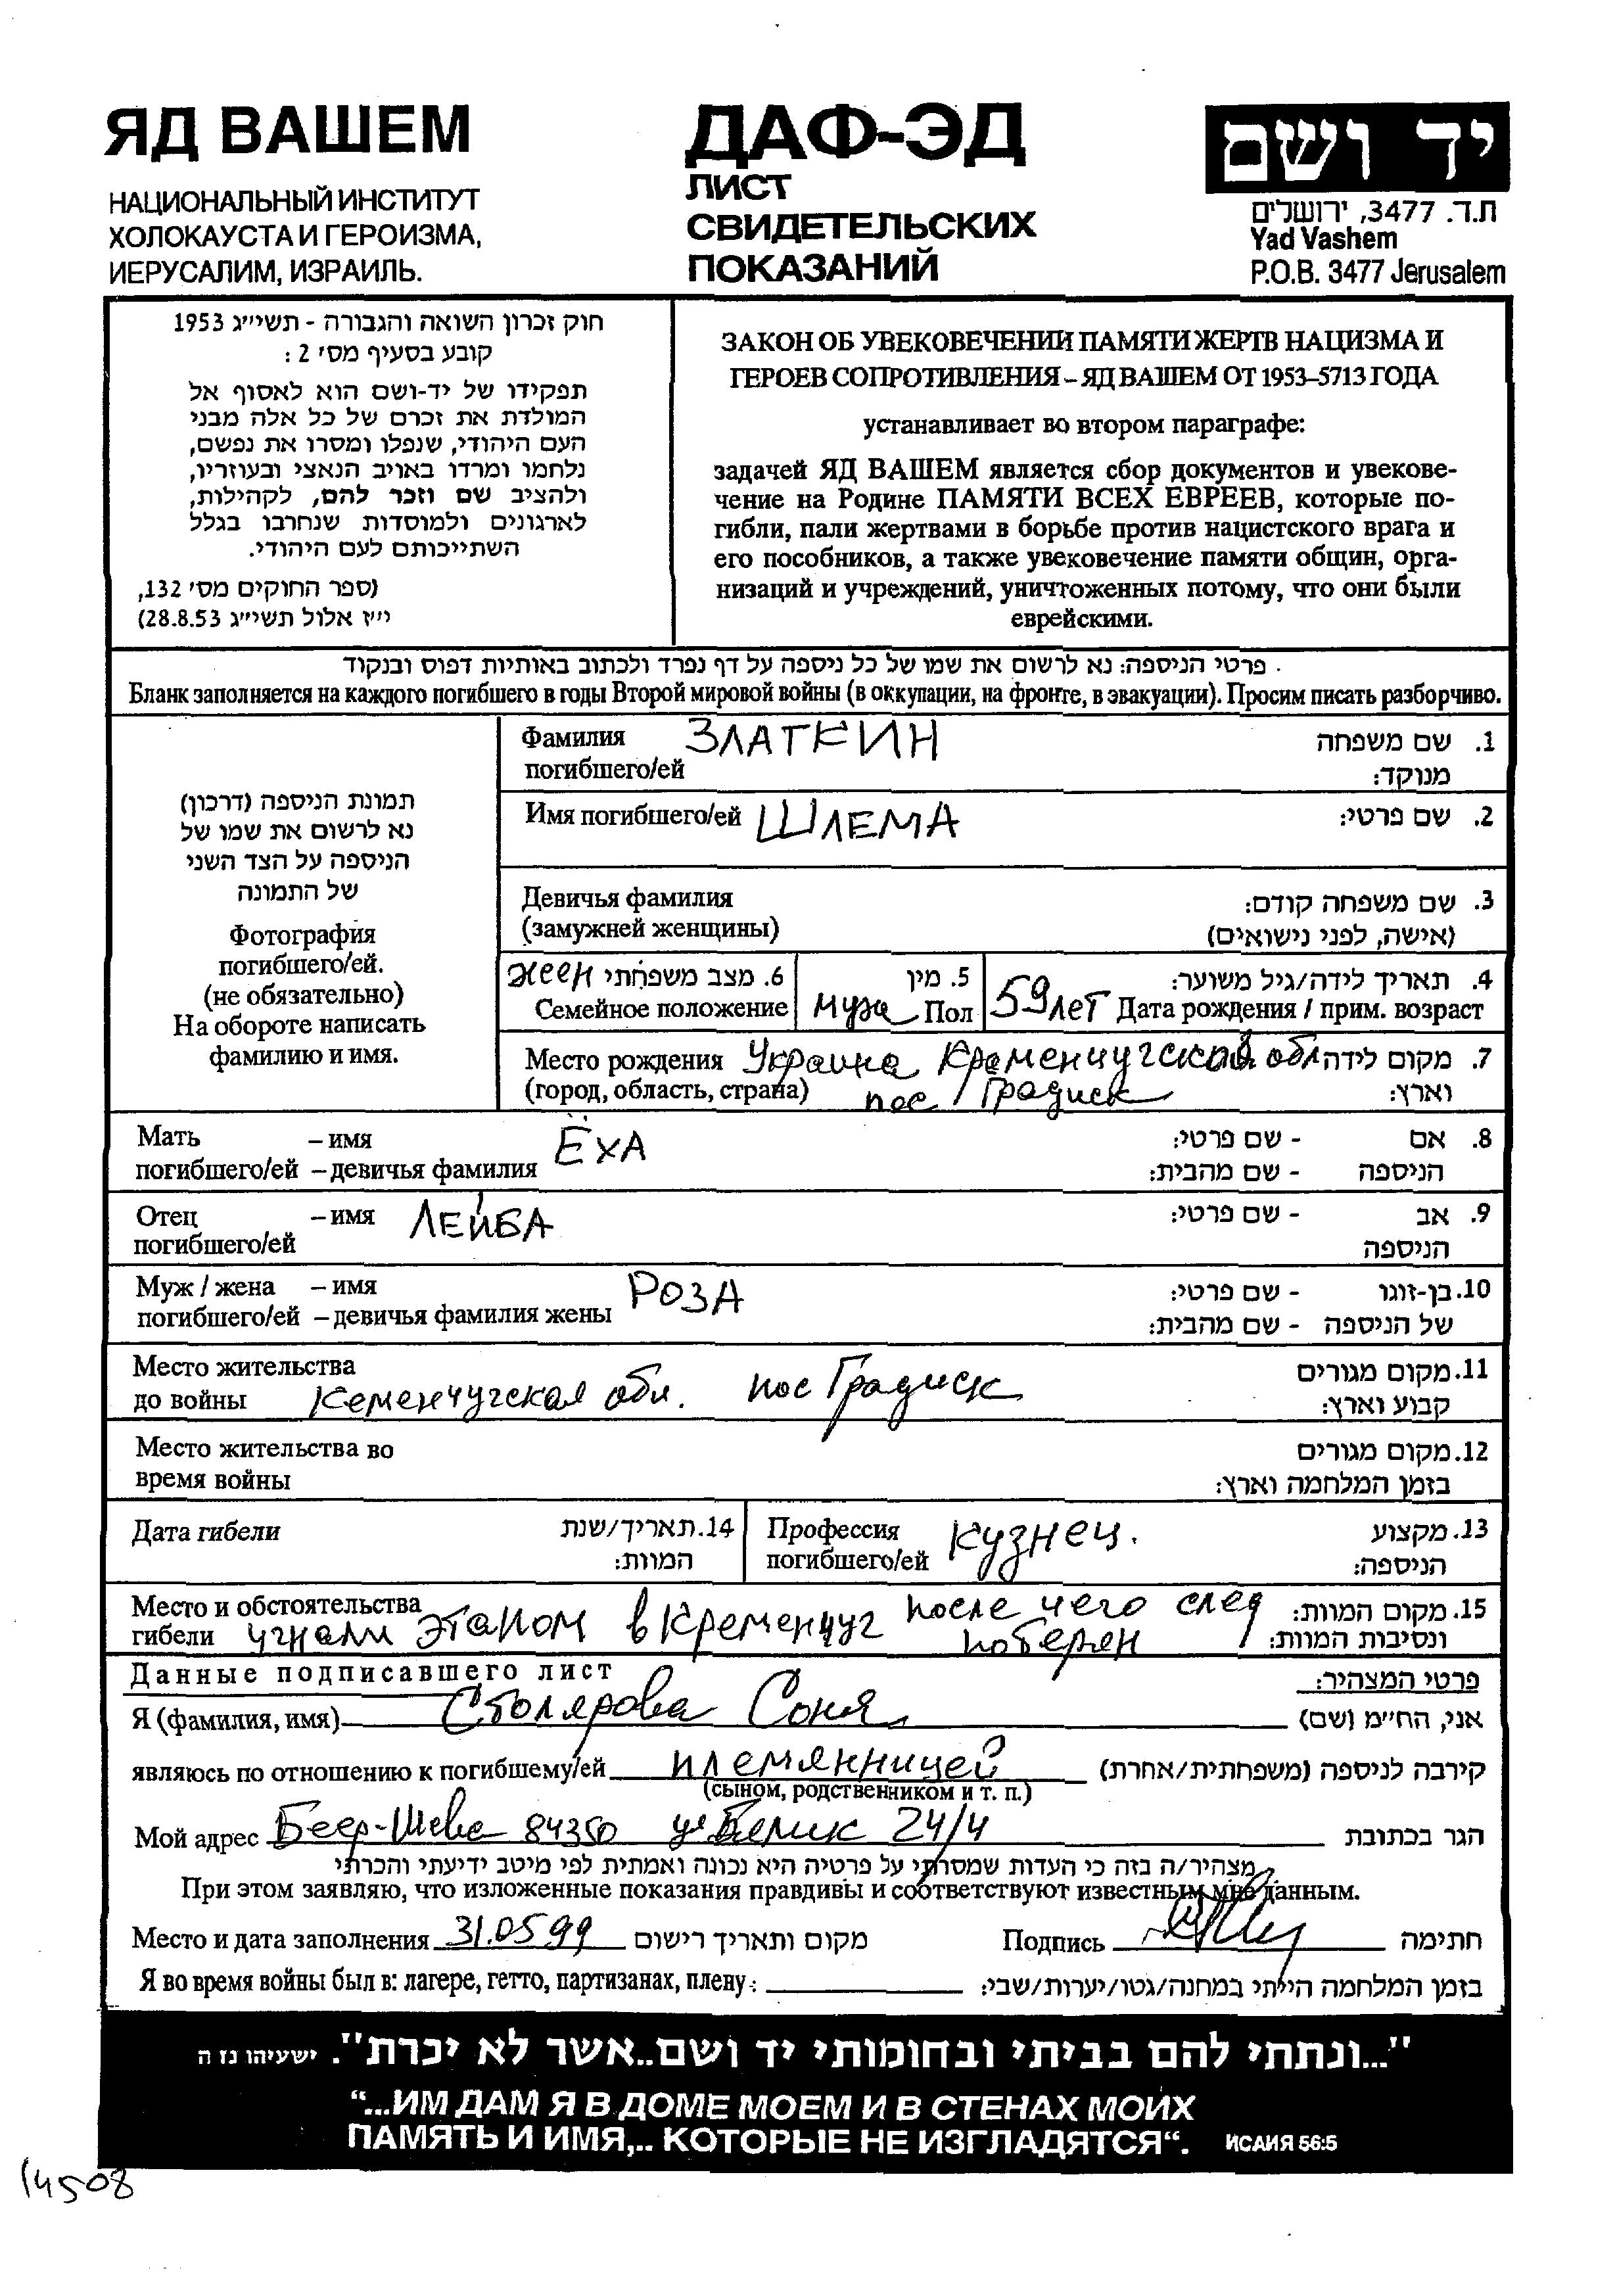 ЯД ВАШЕМ
НАЦИОНАЛЬНЫЙ ИНСТИТУТ
ХОЛОКАУСТА И ГЕРОИЗМА,
ИЕРУСАЛИМ, ИЗРАИЛЬ.
ДАФ-ЭД
ЛИСТ
СВИДЕТЕЛЬСКИХ
ПОКАЗАНИЙ
יד ושם
ת.ד. 3477, ירושלים
Yad Vashem
P.O.B. 3477 Jerusalem
חוק זכרון השואה והגבורה - תשי״ג 1953
קובע בסעיף מס׳ 2 :
תפקידו של יד-ושם הוא לאסוף אל
המולדת את זכרם של כל אלה מבני
העם היהודי, שנפלו ומסרו את נפשם,
נלחמו ומרדו באויב הנאצי ובעוזריו,
ולהציב שם וזכר להם, לקהילות,
לארגונים ולמוסדות שנחרבו בגלל
השתייכותם לעם היהודי.
(ספר החוקים מס׳ 132,
י״ז אלול תשי״ג 28.8.53)
ЗАКОН ОБ УВЕКОВЕЧЕНИИ ПАМЯТИ ЖЕРТВ НАЦИЗМА И
ГЕРОЕВ СОПРОТИВЛЕНИЯ – ЯД ВАШЕМ ОТ 1953–5713 ГОДА
устанавливает во втором параграфе:
задачей ЯД ВАШЕМ является сбор документов и увекове-
чение на Родине ПАМЯТИ ВСЕХ ЕВРЕЕВ, которые по-
гибли, пали жертвами в борьбе против нацистского врага и
его пособников, а также увековечение памяти общин, орга-
низаций и учреждений, уничтоженных потому, что они были
еврейскими.
פרטי הניספה: נא לרשום את שמו של כל ניספה על דף נפרד ולכתוב באותיות דפוס ובנקוד
Бланк заполняется на каждого погибшего в годы Второй мировой войны (в оккупации, на фронте, в эвакуации). Просим писать разборчиво.
תמונת הניספה (דרכון)
נא לרשום את שמו של
הניספה על הצד השני
של התמונה
Фотография
погибшего/ей.
(не обязательно)
На обороте написать
фамилию и имя.
Фамилия ЗЛАТКИН 1. שם משפחה
погибшего/ей מנוקד:
Имя погибшего/ей ШЛЕМА 2. שם פרטי:
Девичья фамилия 3. שם משפחה קודם:
(замужней женщины) (אישה, לפני נישואים)
жеен 6. מצב משפחתי 5. מין 4. תאריך לידה/גיל משוער:
Семейное положение муж Пол 59 лет Дата рождения / прим. возраст
Место рождения Украина Кременчугской обл 7. מקום לידה
(город, область, страна) пос Градиск וארץ:
Мать – имя ЁХА 8. אם - שם פרטי:
погибшего/ей – девичья фамилия הניספה - שם מהבית:
Отец – имя ЛЕЙБА 9. אב - שם פרטי:
погибшего/ей הניספה
Муж / жена – имя РОЗА 10. בן-זוגו - שם פרטי:
погибшего/ей – девичья фамилия жены של הניספה - שם מהבית:
Место жительства 11. מקום מגורים
до войны Кеменчугская обл. пос Градиск קבוע וארץ:
Место жительства во 12. מקום מגורים
время войны בזמן המלחמה וארץ:
Дата гибели 14. תאריך/שנת המוות:
Профессия КУЗНЕЦ. 13. מקצוע
погибшего/ей הניספה:
Место и обстоятельства после чего след 15. מקום המוות:
гибели угнали этапом в Кременчуг потерян ונסיבות המוות:
Данные подписавшего лист פרטי המצהיר:
Я (фамилия, имя) Столярова Соня אני, הח״מ (שם)
являюсь по отношению к погибшему/ей племянницей קירבה לניספה (משפחתית/אחרת)
(сыном, родственником и т. п.)
Мой адрес Беер-Шева 84350 24/4 הגר בכתובת
מצהיר/ה בזה כי העדות שמסרתי על פרטיה היא נכונה ואמתית לפי מיטב ידיעתי והכרתי
При этом заявляю, что изложенные показания правдивы и соответствуют известным мне данным.
Место и дата заполнения 31.05.99 מקום ותאריך רישום Подпись חתימה
Я во время войны был в: лагере, гетто, партизанах, плену: בזמן המלחמה הייתי במחנה/גטו/יערות/שבי:
"...ונתתי להם בביתי ובחומותי יד ושם..אשר לא יכרת". ישעיהו נז ה
“...ИМ ДАМ Я В ДОМЕ МОЕМ И В СТЕНАХ МОИХ
ПАМЯТЬ И ИМЯ,.. КОТОРЫЕ НЕ ИЗГЛАДЯТСЯ“. ИСАИЯ 56:5
14508